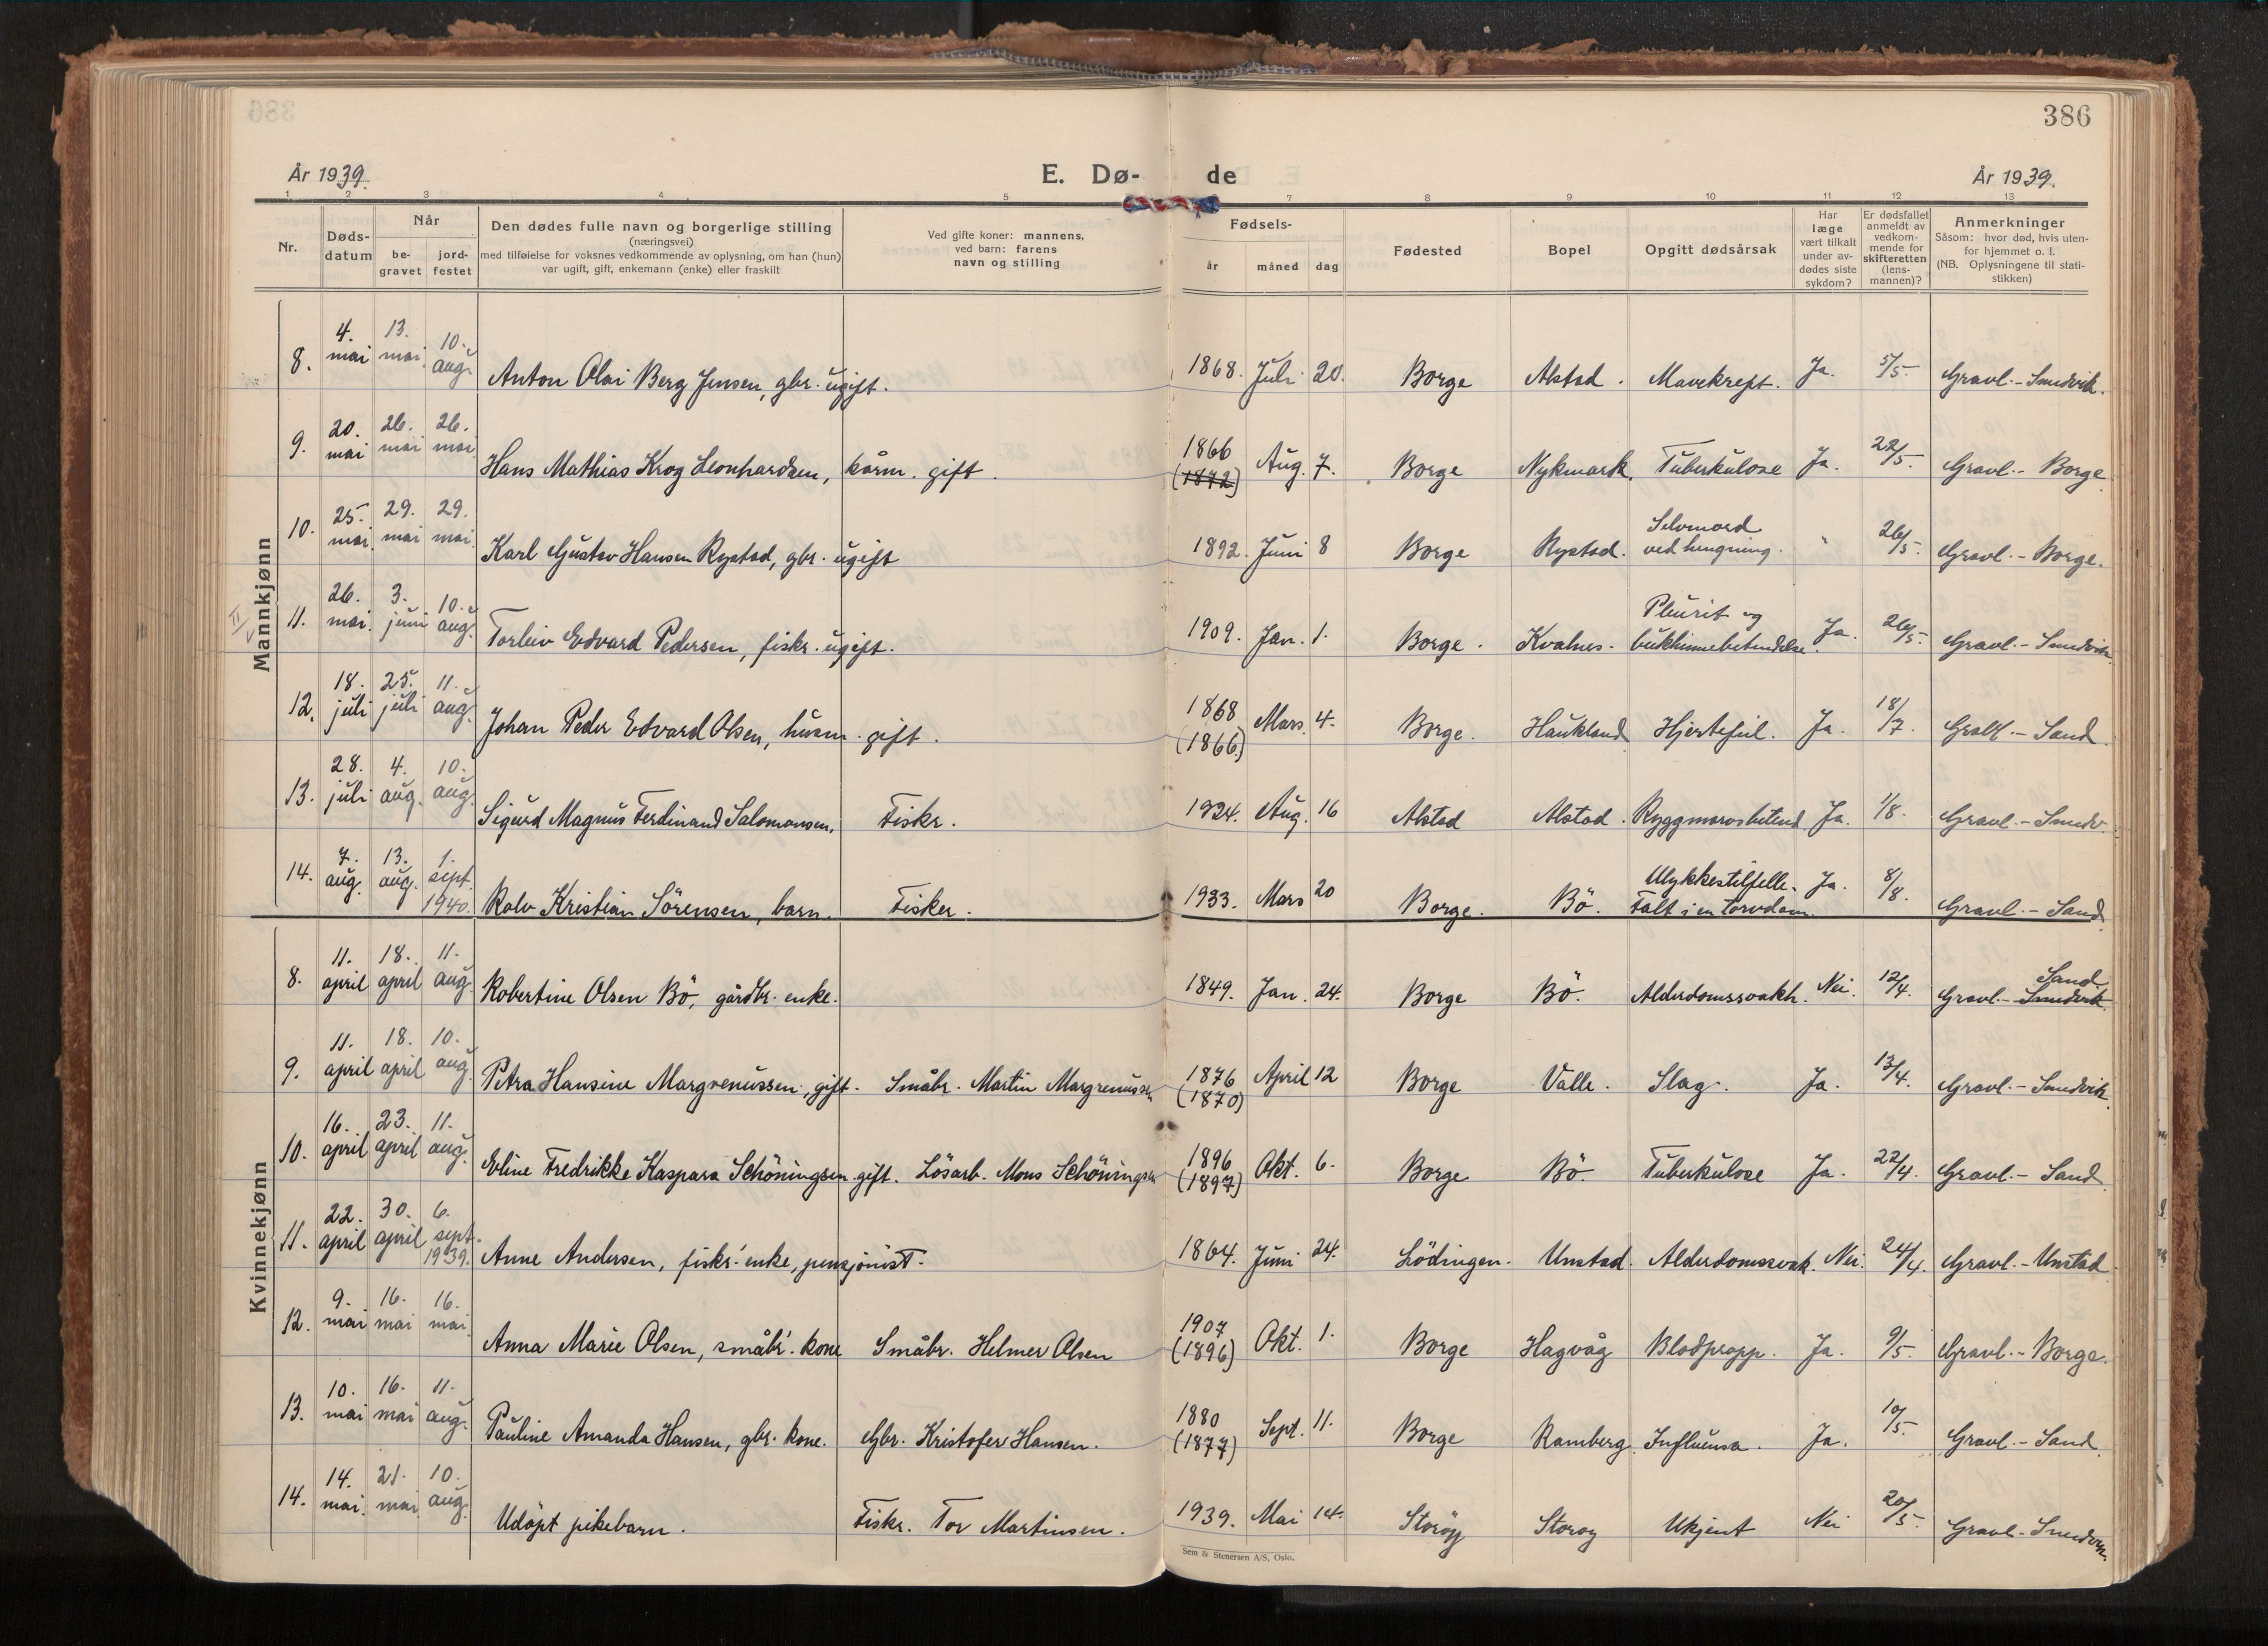 386
År 1939.
E. Dø- de
År 1939.
1 2 3 4 5 7 8 9 10 11 12 13
Nr.
Døds-
datum
Når
be-
gravet
jord-
festet
Den dødes fulle navn og borgerlige stilling
(næringsvei)
med tilføielse for voksnes vedkommende av oplysning, om han (hun)
var ugift, gift, enkemann (enke) eller fraskilt
Ved gifte koner: mannens,
ved barn: farens
navn og stilling
Fødsels-
år måned dag
Fødested
Bopel
Opgitt dødsårsak
Har
læge
vært tilkalt
under av-
dødes siste
sykdom?
Er dødsfallet
anmeldt av
vedkom-
mende for
skifteretten
(lens-
mannen)?
Anmerkninger
Såsom: hvor død, hvis uten-
for hjemmet o. l.
(NB. Oplysningene til stati-
stikken)
Mannkjønn
8. 4. mai 13. mai 10. aug. Anton Olai Berg Jensen, gbr. ugift. 1868. Juli 20. Borge Alstad. Mavekreft. Ja. 5/5. Gravl. - Smedvik.
9. 20. mai 26. mai 26. mai Hans Mathias Krog Leonhardsen, kårm. gift. 1866 (1872) Aug. 7. Borge Nykmark. Tuberkulose Ja. 22/5. Gravl. - Borge
10. 25. mai 29. mai 29. mai Karl Gustav Hansen Rystad, gbr. ugift 1892. Juni 8 Borge Rystad. Selvmord ved hengning. " 26/5. Gravl. - Borge.
11. 26. mai. 3. juni 10. aug. Torleiv Edvard Pedersen, fiskr. ugift. 1909. Jan. 1. Borge. Kvalnes. Pleurit og bukhinnebetendelse. Ja. 26/5. Gravl. - Smedvik
12. 18. juli 25. juli 11. aug. Johan Peder Edvard Olsen, husm. gift. 1868 (1866) Mars. 4. Borge. Haukland Hjertefeil. Ja. 18/7. Gravl. - Sand.
13. 28. juli 4. aug. 10. aug. Sigurd Magnus Ferdinand Salomonsen, Fiskr. 1924. Aug. 16 Alstad Alstad. Ryggmarvsbetend. Ja. 1/8. Gravl. - Smedv.
14. 7. aug. 13. aug. 1. sept. 1940. Rolv Kristian Sörensen, barn. Fisker. 1933. Mars 20 Borge. Bö. Ulykkestilfelle. Falt i en torvdam. Ja. 8/8. Gravl. - Sand
Kvinnekjønn
8. 11. april 18. april 11. aug. Robertine Olsen Bö, gårdbr. enke. 1849. Jan. 24. Borge Bö. Alderdomssvakh. Nei. 12/4. Gravl. - Smedvik Sand
9. 11. april 18. april 10. aug. Petra Hansine Margrenussen, gift. Småbr. Martin Margrenussen 1876 (1870) April 12 Borge Valle. Slag. Ja. 13/4. Gravl. - Smedvik
10. 16. april 23. april 11. aug. Evline Fredrikke Kaspara Schöningsen gift. Lösarb. Mons Schöningsen 1896 (1897) Okt. 6. Borge Bö. Tuberkulose Ja. 22/4. Gravl. - Sand
11. 22. april 30. april 6. sept. 1939. Anne Andersen, fiskr. enke, pensjonist. 1864. Juni 24. Lödingen. Unstad. Alderdomssvak. Nei. 24/4. Gravl. - Unstad
12. 9. mai 16. mai 16. mai Anna Marie Olsen, småbr. kone Småbr. Helmer Olsen 1907 (1896) Okt. 1. Borge Hagvåg Blodpropp. Ja. 9/5. Gravl. - Borge.
13. 10. mai 16. mai 11. aug. Pauline Amanda Hansen, gbr. kone. Gbr. Kristofer Hansen. 1880 (1877) Sept. 11. Borge Ramberg Influensa. Ja. 10/5. Gravl. - Sand
14. 14. mai. 21. mai 10. aug. Udöpt pikebarn. Fiskr. Tor Martinsen. 1939. Mai 14. Storöy Storøy Ukjent Nei 20/5. Gravl. - Smedvik.
Sem & Stenersen A/S, Oslo.